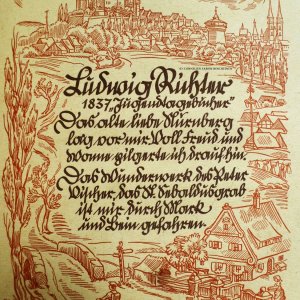 Ludwig Richter
1837 „Jugendtagebücher"
Das alte liebe Nürnberg
lag vor mir. Voll Freud und
Wonne pilgerte ich drauf hin.
Das Wunderwerk des Peter
Vischer, das St. Sebaldusgrab
ist mir durch Mark
und Bein gefahren.